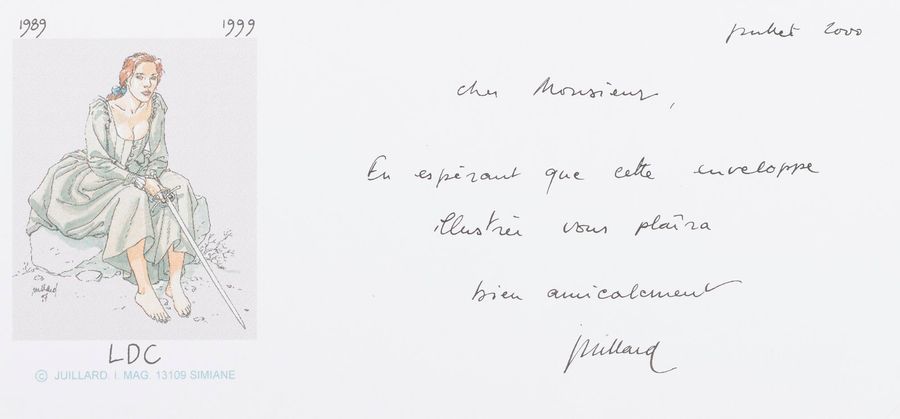 1989 1999
juillard
juillet 2000
cher Monsieur,
En espérant que cette enveloppe
illustrée vous plaîra
bien amicalement
juillard
LDC
© JUILLARD. I. MAG. 13109 SIMIANE